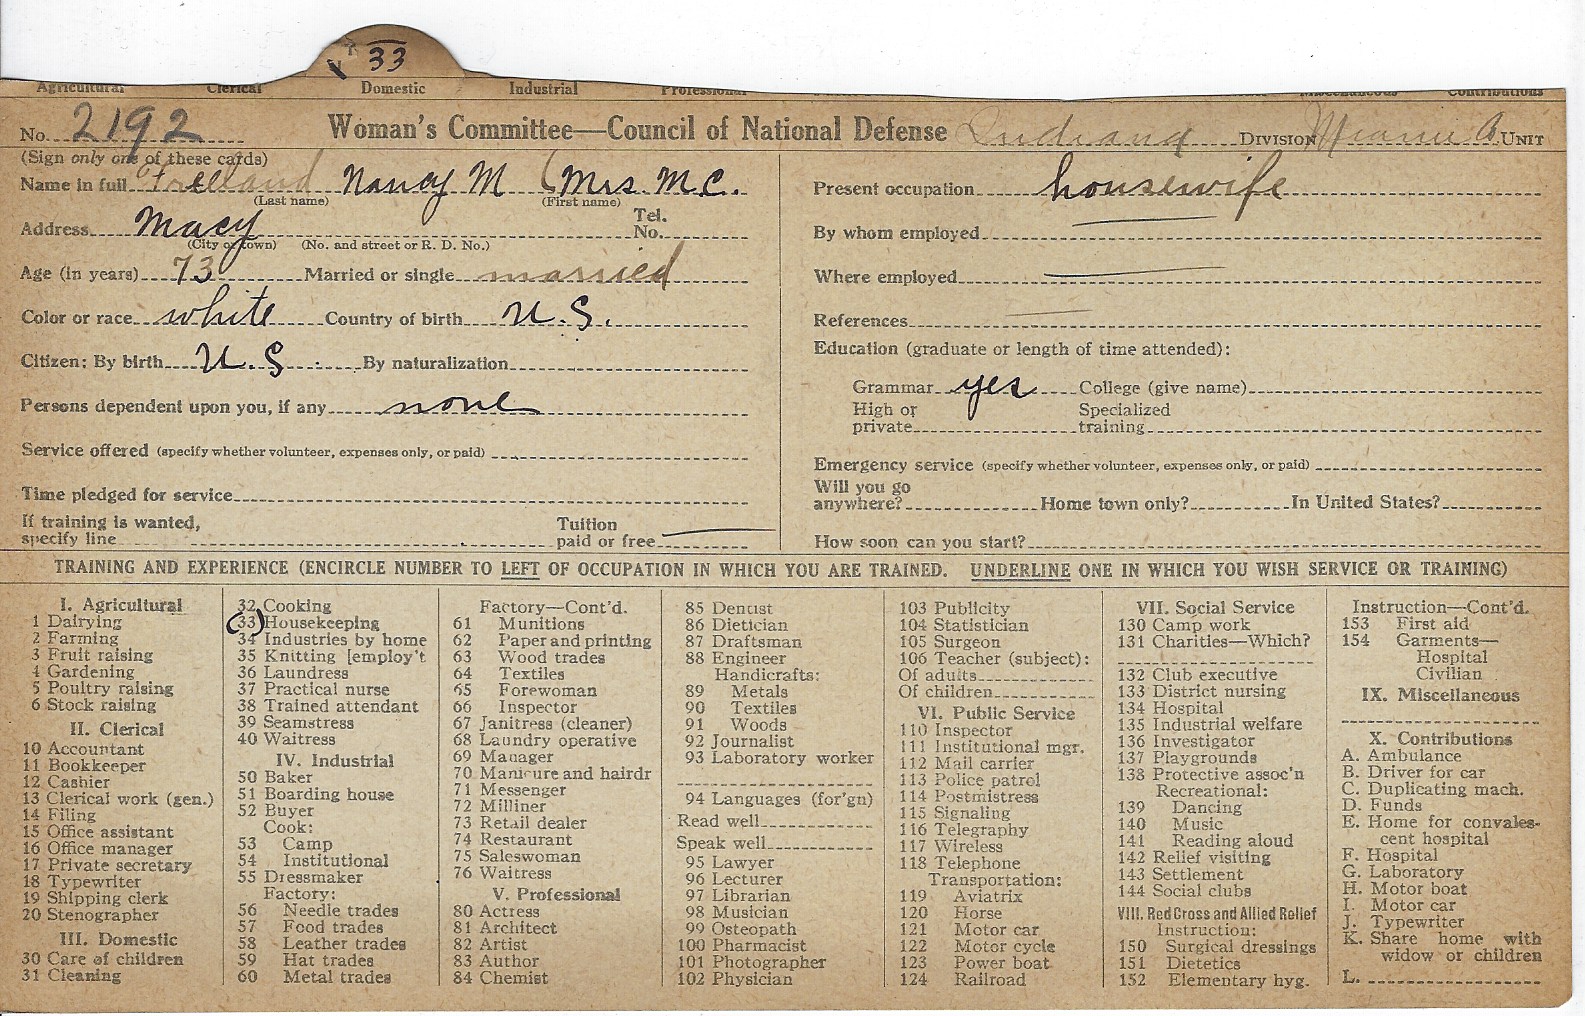 33
Agricultural Clerical Domestic Industrial Professional Miscellaneous Contributions
No. 2192 Woman's Committee—Council of National Defense Indiana DIVISION Miami Co. UNIT
(Sign only one of these cards)
Name in full Freeland Nancy M (Mrs. M.C.
(Last name) (First name)
Address Macy Tel. No.
(City or town) (No. and street or R. D. No.)
Age (in years) 73 Married or single married
Color or race white Country of birth U.S.
Citizen: By birth U.S. By naturalization
Persons dependent upon you, if any none
Service offered (specify whether volunteer, expenses only, or paid)
Time pledged for service
If training is wanted, specify line Tuition paid or free
Present occupation housewife
By whom employed
Where employed
References
Education (graduate or length of time attended):
Grammar yes College (give name)
High or private Specialized training
Emergency service (specify whether volunteer, expenses only, or paid)
Will you go anywhere? Home town only? In United States?
How soon can you start?
TRAINING AND EXPERIENCE (ENCIRCLE NUMBER TO LEFT OF OCCUPATION IN WHICH YOU ARE TRAINED. UNDERLINE ONE IN WHICH YOU WISH SERVICE OR TRAINING)
I. Agricultural
1 Dairying
2 Farming
3 Fruit raising
4 Gardening
5 Poultry raising
6 Stock raising
II. Clerical
10 Accountant
11 Bookkeeper
12 Cashier
13 Clerical work (gen.)
14 Filing
15 Office assistant
16 Office manager
17 Private secretary
18 Typewriter
19 Shipping clerk
20 Stenographer
III. Domestic
30 Care of children
31 Cleaning
32 Cooking
33 Housekeeping
34 Industries by home
35 Knitting [employ't
36 Laundress
37 Practical nurse
38 Trained attendant
39 Seamstress
40 Waitress
IV. Industrial
50 Baker
51 Boarding house
52 Buyer
Cook:
53 Camp
54 Institutional
55 Dressmaker
Factory:
56 Needle trades
57 Food trades
58 Leather trades
59 Hat trades
60 Metal trades
Factory—Cont'd.
61 Munitions
62 Paper and printing
63 Wood trades
64 Textiles
65 Forewoman
66 Inspector
67 Janitress (cleaner)
68 Laundry operative
69 Manager
70 Manicure and hairdr
71 Messenger
72 Milliner
73 Retail dealer
74 Restaurant
75 Saleswoman
76 Waitress
V. Professional
80 Actress
81 Architect
82 Artist
83 Author
84 Chemist
85 Dentist
86 Dietician
87 Draftsman
88 Engineer
Handicrafts:
89 Metals
90 Textiles
91 Woods
92 Journalist
93 Laboratory worker
94 Languages (for'gn)
Read well
Speak well
95 Lawyer
96 Lecturer
97 Librarian
98 Musician
99 Osteopath
100 Pharmacist
101 Photographer
102 Physician
103 Publicity
104 Statistician
105 Surgeon
106 Teacher (subject):
Of adults
Of children
VI. Public Service
110 Inspector
111 Institutional mgr.
112 Mail carrier
113 Police patrol
114 Postmistress
115 Signaling
116 Telegraphy
117 Wireless
118 Telephone
Transportation:
119 Aviatrix
120 Horse
121 Motor car
122 Motor cycle
123 Power boat
124 Railroad
VII. Social Service
130 Camp work
131 Charities—Which?
132 Club executive
133 District nursing
134 Hospital
135 Industrial welfare
136 Investigator
137 Playgrounds
138 Protective assoc'n
Recreational:
139 Dancing
140 Music
141 Reading aloud
142 Relief visiting
143 Settlement
144 Social clubs
VIII. Red Cross and Allied Relief
Instruction:
150 Surgical dressings
151 Dietetics
152 Elementary hyg.
Instruction—Cont'd.
153 First aid
154 Garments—
Hospital
Civilian
IX. Miscellaneous
X. Contributions
A. Ambulance
B. Driver for car
C. Duplicating mach.
D. Funds
E. Home for convales-
cent hospital
F. Hospital
G. Laboratory
H. Motor boat
I. Motor car
J. Typewriter
K. Share home with
widow or children
L.